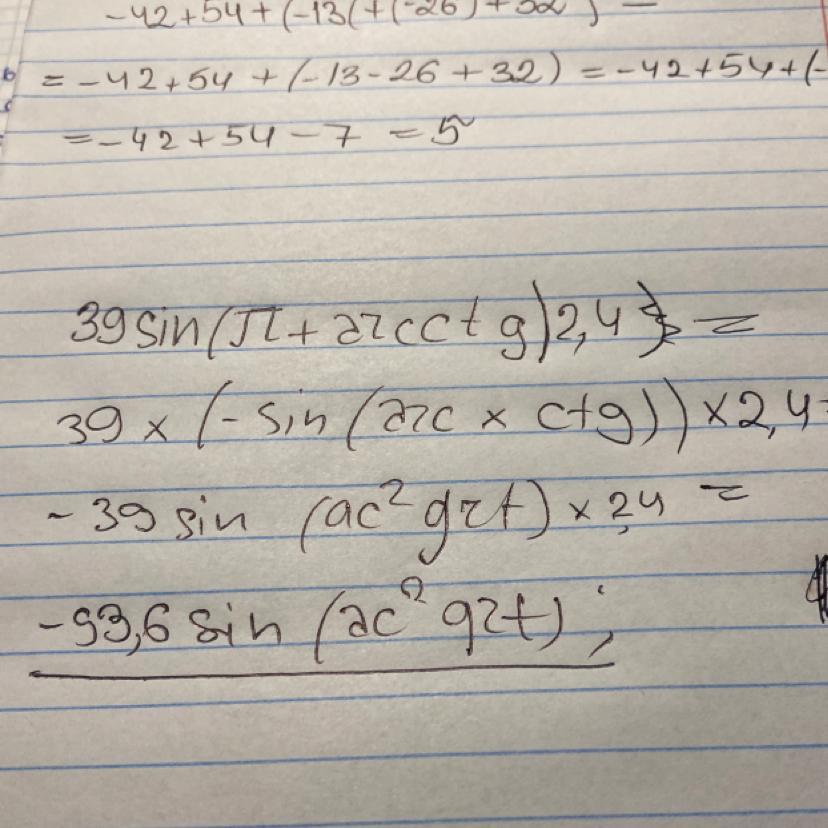 -42+54+(-13(+(-26)+32) =
= -42+54 + (-13-26+32) = -42+54+(-
= -42+54-7 = 5
39 sin(π + arcctg)2,4} =
39 × (-sin (arc × ctg)) × 2,4 =
-39 sin (ac² grt) × 2,4 =
-93,6 sin (ac² grt) ;